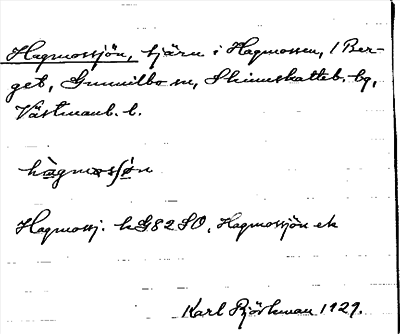 Hagmossjön, tjärn i Hagmossen, 1 Ber-
get, Gunnilbo sn, Skinnskatteb. bg,
Västmanl. l.
hàgmosʃön
Hagmossj. kG82SO, Hagmossjön ek
Karl Björkman 1929.